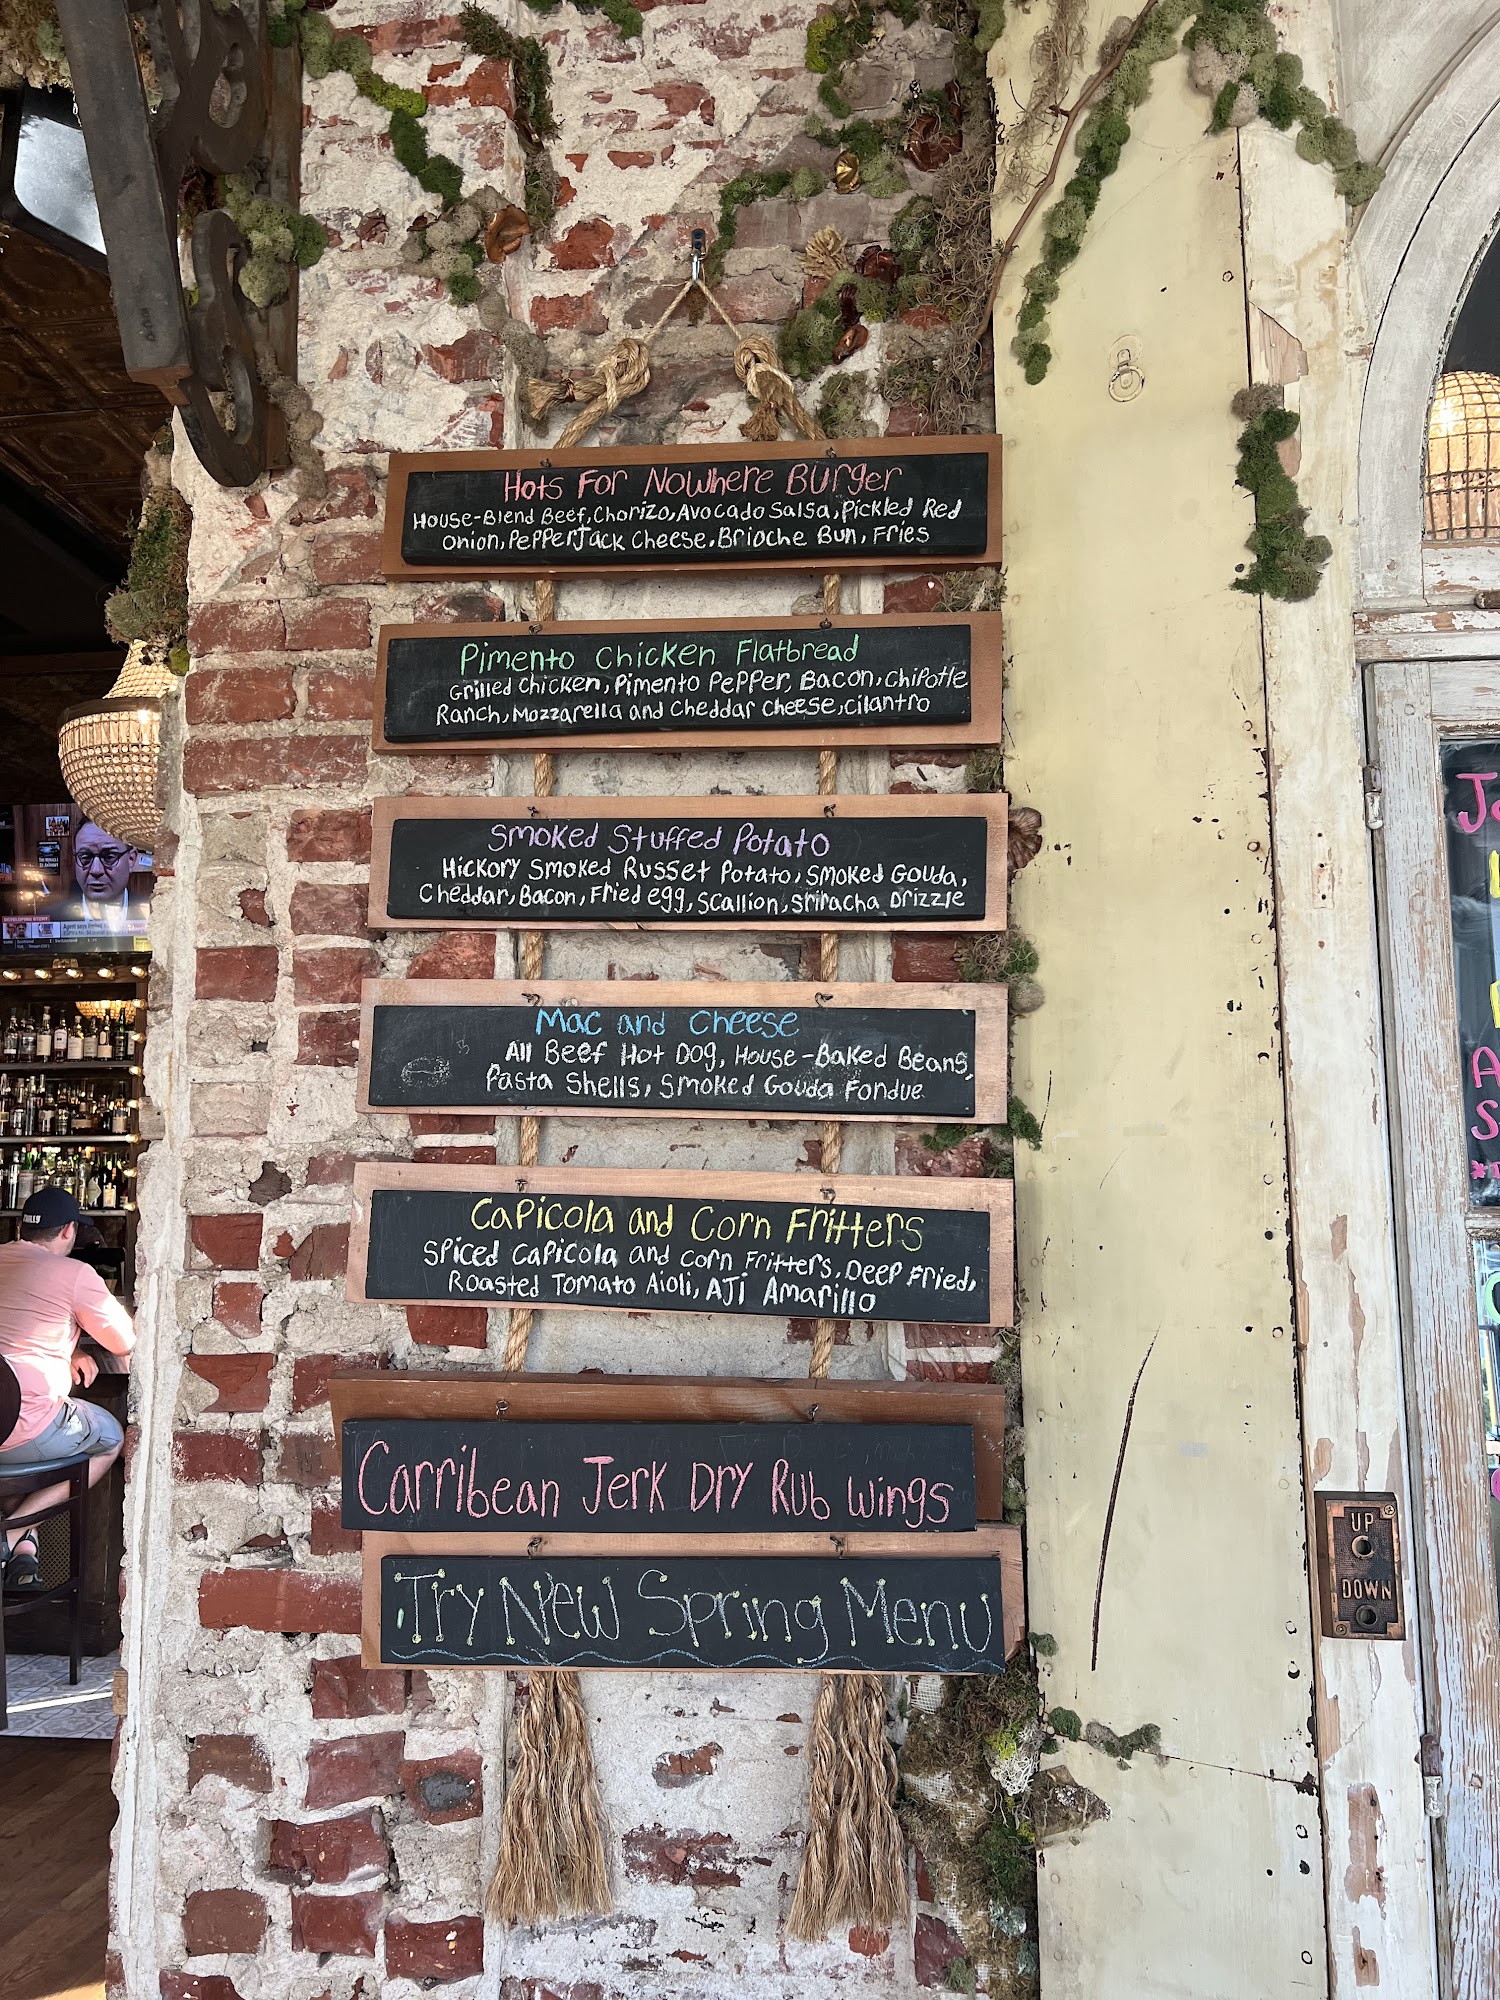 Hots For Nowhere Burger
House-Blend Beef, Chorizo, Avocado Salsa, Pickled Red
Onion, PepperJack Cheese, Brioche Bun, Fries
Pimento Chicken Flatbread
Grilled Chicken, Pimento Pepper, Bacon, Chipotle
Ranch, Mozzarella and Cheddar Cheese, Cilantro
Smoked Stuffed Potato
Hickory Smoked Russet Potato, Smoked Gouda,
Cheddar, Bacon, Fried egg, Scallion, Sriracha Drizzle
Mac and Cheese
All Beef Hot Dog, House-Baked Beans,
Pasta Shells, Smoked Gouda Fondue
Capicola and Corn Fritters
Spiced Capicola and Corn Fritters, Deep Fried,
Roasted Tomato Aioli, AJi Amarillo
Carribean Jerk Dry Rub Wings
Try New Spring Menu
UP
DOWN
DEVELOPING STORY
Agent says